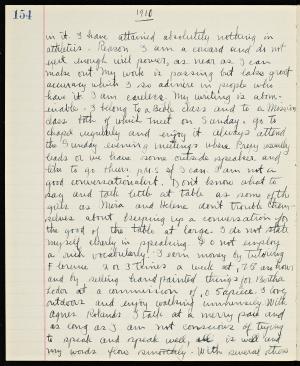 154
1910
in it. I have attained absolutely nothing in
athletics. Reason I am a coward and do not
get enough will power, as near as I can
make out. My work is passing but lacks great
accuracy which I so admire in people who
have it. I am careless. My writing is abom-
enable. I belong to a Bible class and to a Mission
class both of which meet on Sunday. Go to
chapel regularly and enjoy it always. Attend
the Sunday evening meetings where Prexy usually
leads or we have some outside speaker, and
like to go there. if I can. I am not a
good conversationalist. Don't know what to
say and talk little at table as some of the
girls as Mira and Helene don't trouble them-
selves about keeping up a conversation for
the good of the table at large. I do not state
myself clearly in speaking. Do not employ
a rich vocabulary. I earn money by tutoring
Florence 2 or 3 times a week at .75 an hour
and by selling hand painted things for Bertha
on a commission of .05 apiece. I love
outdoors and enjoy walking immensely. With
Agnes I talk at a merry pace and
as long as I am not conscious of trying
to speak and speak well, all is well and
my words flow smoothly. With several others